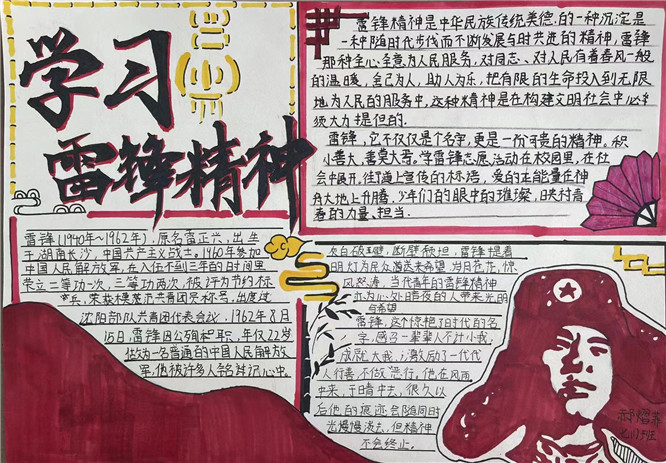 学习
雷锋精神
雷锋精神是中华民族传统美德的一种沉淀是
一种随时代步伐而不断发展与时共进的精神,雷锋
那种全心全意为人民服务,对同志、对人民有着春风一般
的温暖,舍己为人,助人为乐,把有限的生命投入到无限
地为人民的服务中,这种精神是在构建文明社会中必
须大力提倡的.
雷锋,它不仅仅是个名字,更是一份可贵的精神。积
小善大,善莫大焉。学雷锋志愿活动在校园里,在社
会中展开。街道上宣传的标语,爱的正能量在神
舟大地上升腾,少年们的眼中的璀璨,映衬青
春的力量、担当.
雷锋(1940年~1962年),原名雷正兴,出生
于湖南长沙,中国共产主义战士。1960年参加
中国人民解放军,在入伍不到三年的时间里
荣立二等功一次,三等功两次,被评为节约标
兵,荣获模范共青团员称号,出席过
沈阳部队共青团代表会议,1962年8月
15日,雷锋因公殉职,年仅22岁
做为一名普通的中国人民解放
军,他被许多人铭其记心中
断壁残垣,雷锋提着
明灯为民众
风怒涛,当代青年的雷锋精神
亦为心处暗夜的人带来光明
与希望
雷锋,这个惊艳了时代的名
字,感召一辈辈人不计小我,
成就大我,激励了一代代
人行善不做恶行,他在风雨
中来,于晴中去,很久以
后他的痕迹会随同时
光慢慢淡去,但精神
不会终止.